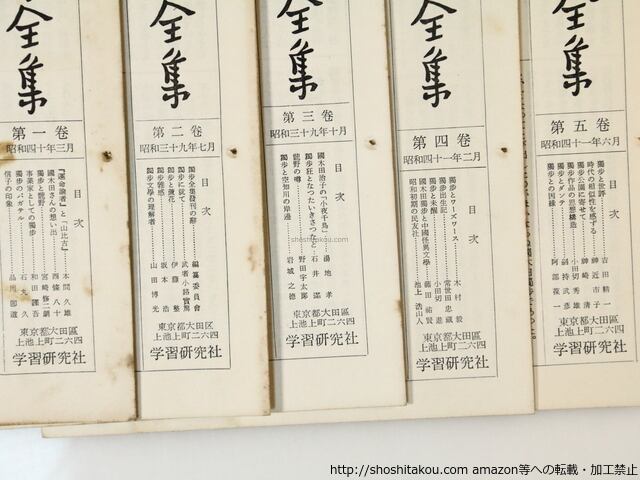 全集
第一卷
昭和四十年三月
目次
『運命論者』と『山比古』 本間久雄
國木田さんの想い出 西條八十
獨步と龍野 宮崎修二朗
事業家としての獨步 和田謹吾
獨步のバガテル 石丸久
信子の印象
東京都大田區
上池上町二六四
学習研究社
全集
第二卷
昭和三十九年七月
目次
獨步全集發刊の辭 編纂委員會
獨步に就て 武者小路實篤
獨步と蘆花 伊藤整
獨步雜感 坂本浩
獨步文學の理解者 山田博光
東京都大田區
上池上町二六四
学習研究社
全集
第三卷
昭和三十九年十月
目次
國木田治子の「小夜千鳥」 湯地孝
獨步狂となつたいきさつなど 石井滿
龍野の噂 野田宇太郎
獨步と空知川の岸邊 岩城之德
東京都大田區
上池上町二六四
学習研究社
全集
第四卷
昭和四十一年二月
目次
獨步とワーズワース 木村毅
獨步出生記 常世田忠藏
獨步と未醒 小田切進
國木田獨步と中國怪異文學 藤田祐賢
昭和初期の民友社 池上浩山人
東京都大田區
上池上町二六四
学習研究社
全集
第五卷
昭和四十一年六月
目次
獨步と世評 吉田精一
時代の相似性を感ずる 神近市子
獨步公園に寄せて 神崎清
獨步作品の思想構造 小田切秀雄
獨步とダンテ 剣持武彦
獨步との因縁 阿部葭一
東京都大田區
上池上町二六四
学習研究社
shoshitakou.com
http://shoshitakou.com amazon等への転載・加工禁止